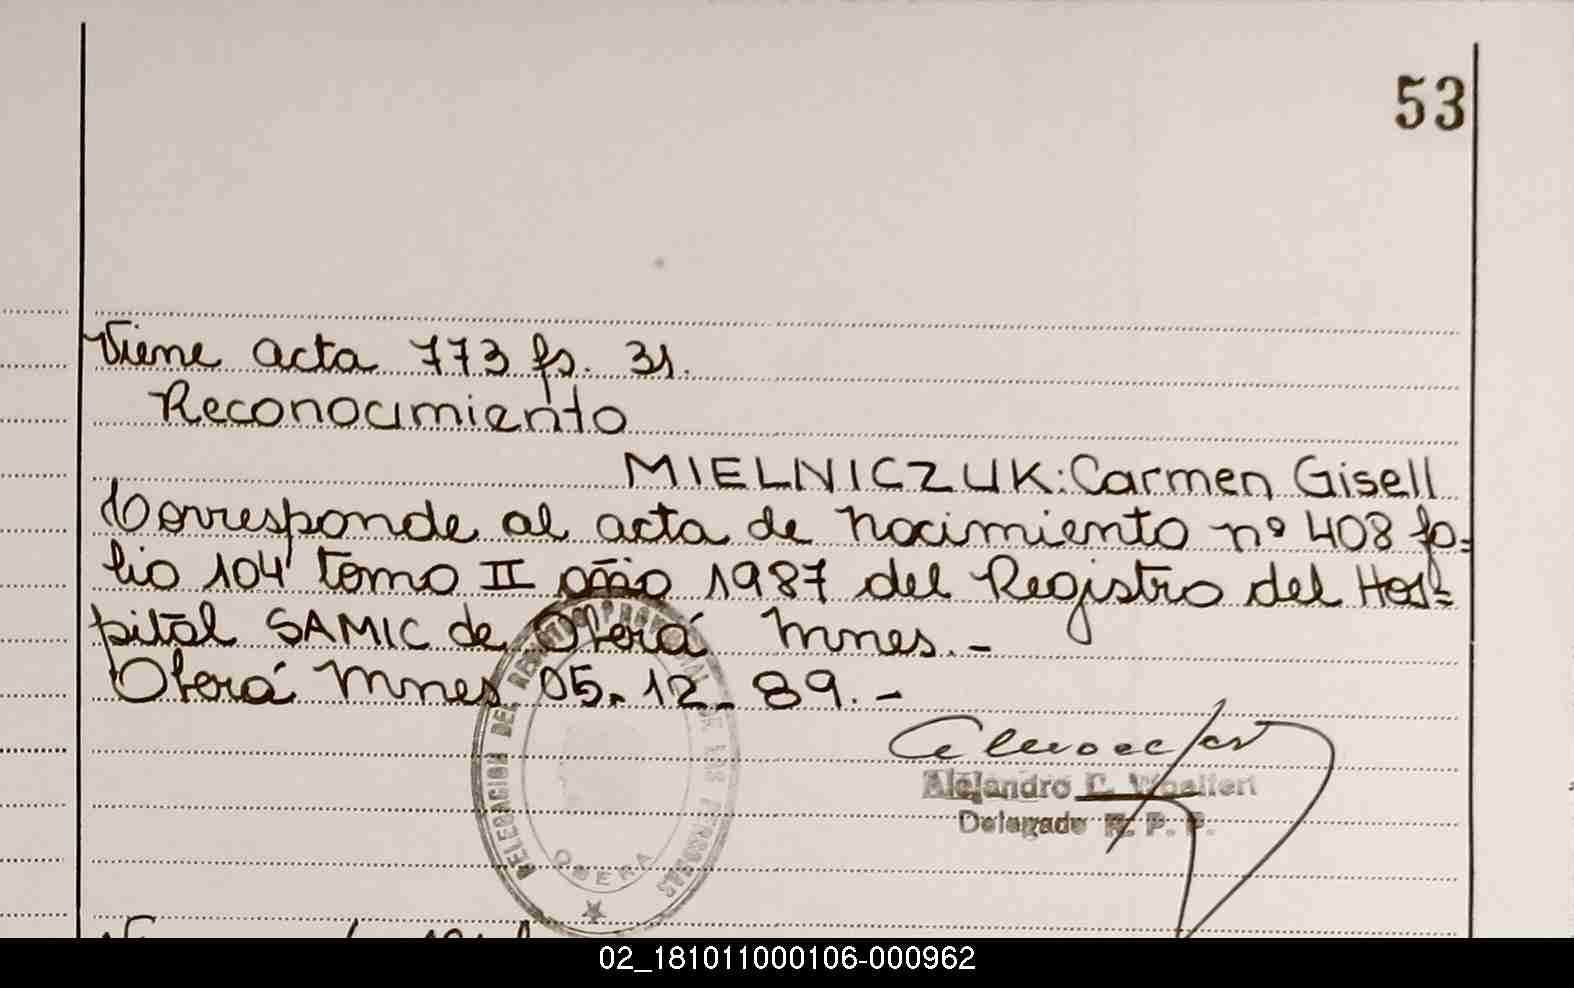 53
Viene acta 773 fs. 31.
Reconocimiento
MIELNICZUK: Carmen Gisell
Corresponde al acta de nacimiento nº 408 fo=
lio 104 tomo II año 1987 del Registro del Hos=
pital SAMIC de Oberá Mnes.-
Oberá Mnes 05-12-89.-
Alejandro C.
Delegado R. P. P.
DELEGACION DEL REGISTRO PROVINCIAL DE LAS PERSONAS
OBERA
02_181011000106-000962